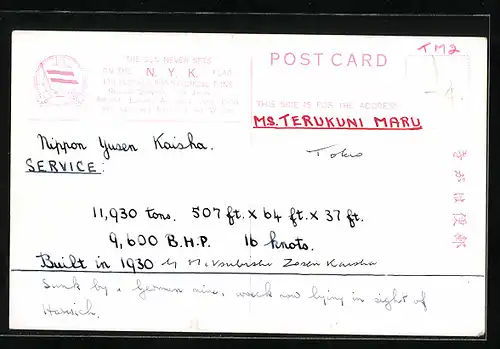 THE SUN NEVER SETS
ON THE N.Y.K. FLAG
POST CARD
TM2
THIS SIDE IS FOR THE ADDRESS
MS. TERUKUNI MARU
Nippon Yusen Kaisha.
SERVICE:
Tokio
きがは便郵
11,930 tons. 507 ft. x 64 ft. x 37 ft.
9,600 B.H.P. 16 knots.
Built in 1930 by Mitsubishi Zosen Kaisha
Sunk by a German mine, wreck now lying in sight of
Harwich.